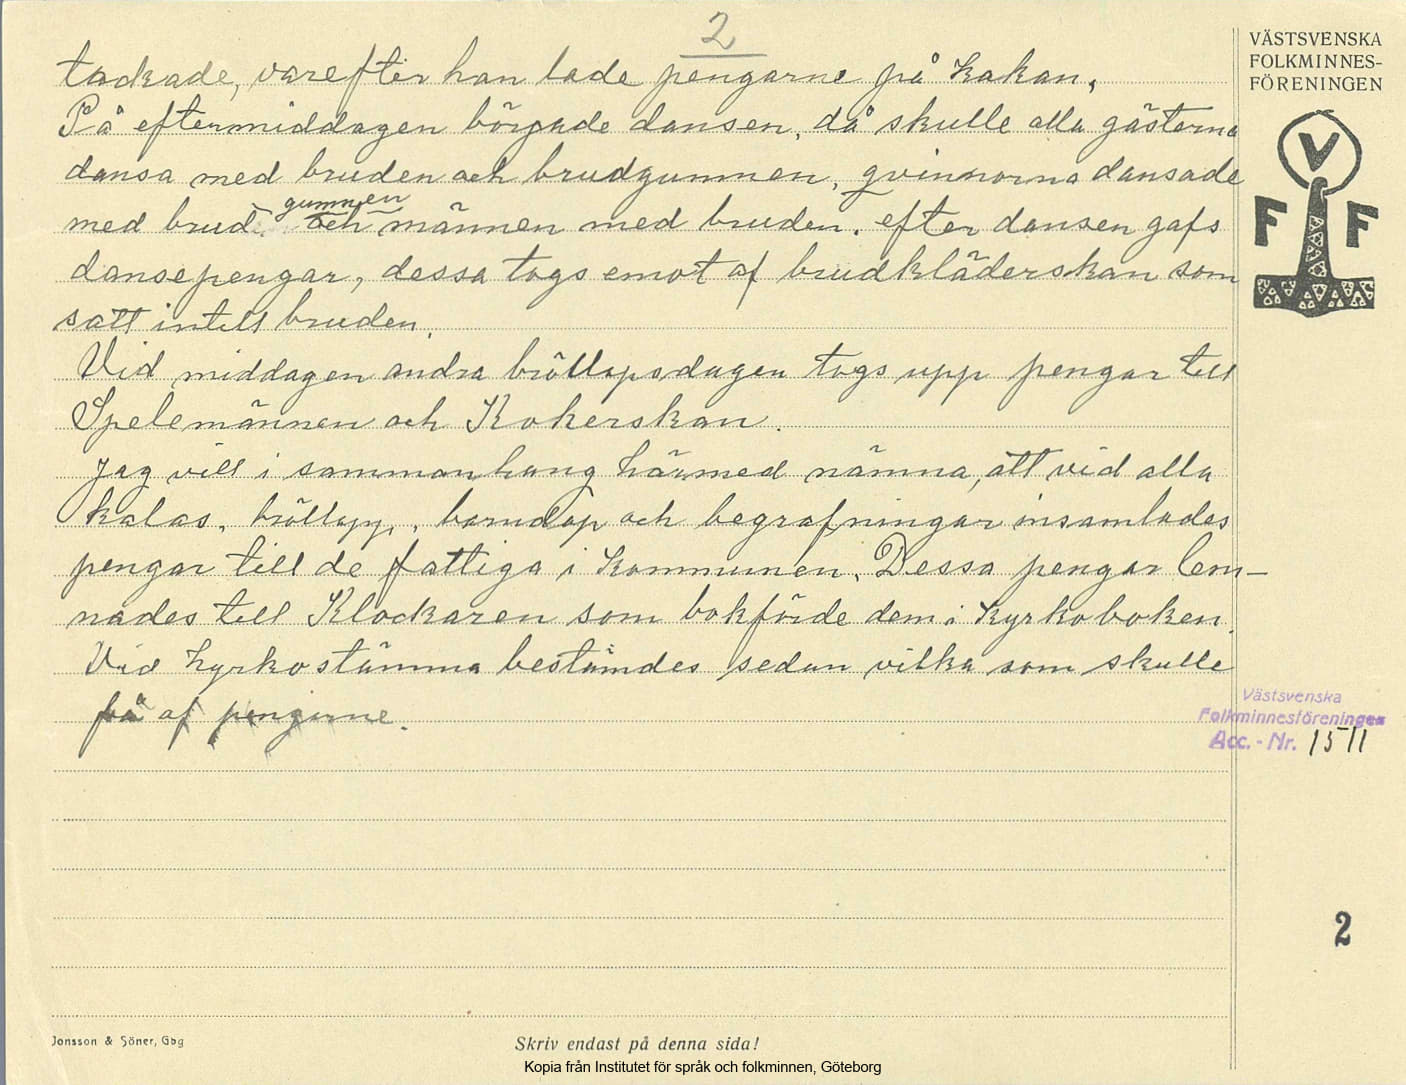 2
tackade, varefter han lade pengarne på kakan.
På eftermiddagen började dansen, då skulle alla gästerna
dansa med bruden och brudgummen, qvinnorna dansade
med brudgummen och männen med bruden. efter dansen gafs
dansepengar, dessa togs emot af brudkläderskan som
satt intill bruden.
Vid middagen andra bröllopsdagen togs upp pengar till
Spelemännen och Kokerskan.
Jag vill i sammanhang härmed nämna, att vid alla
kalas, bröllopp, barndop och begrafningar insamlades
pengar till de fattiga i Kommunen. Dessa pengar lem-
nades till Klockaren som bokförde dem i Kyrkoboken.
Vid Kyrkostämma bestämdes sedan vilka som skulle
få af pengarne.
VÄSTSVENSKA
FOLKMINNES-
FÖRENINGEN
V
F F
Västsvenska
Folkminnesföreningen
Acc. - Nr. 1511
2
Jonsson & Söner, Gbg
Skriv endast på denna sida!
Kopia från Institutet för språk och folkminnen, Göteborg